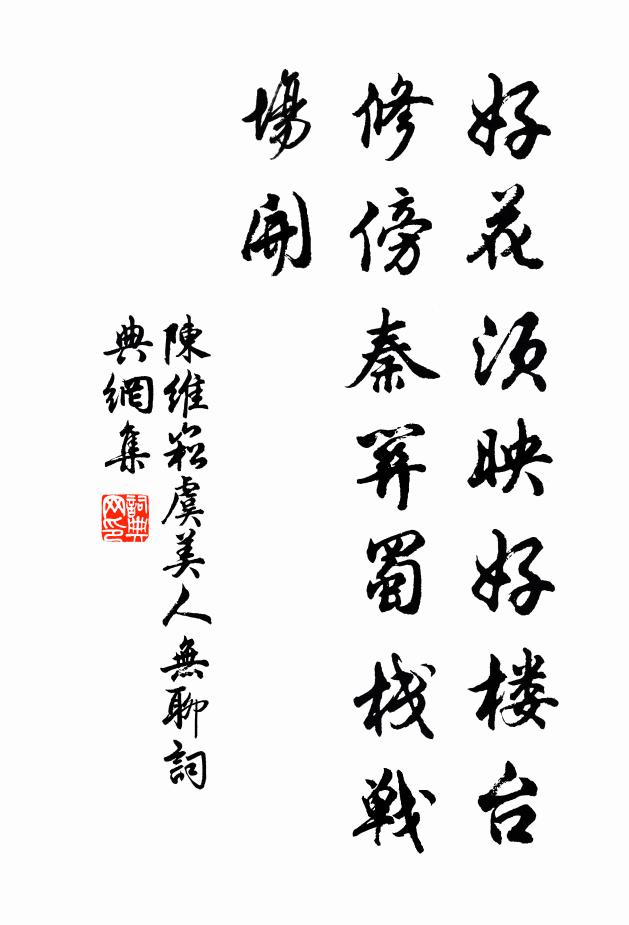 好花须映好楼台
修傍秦關蜀栈戦
場開
陳維崧虞美人無聊詞
典網集
詞典
网印